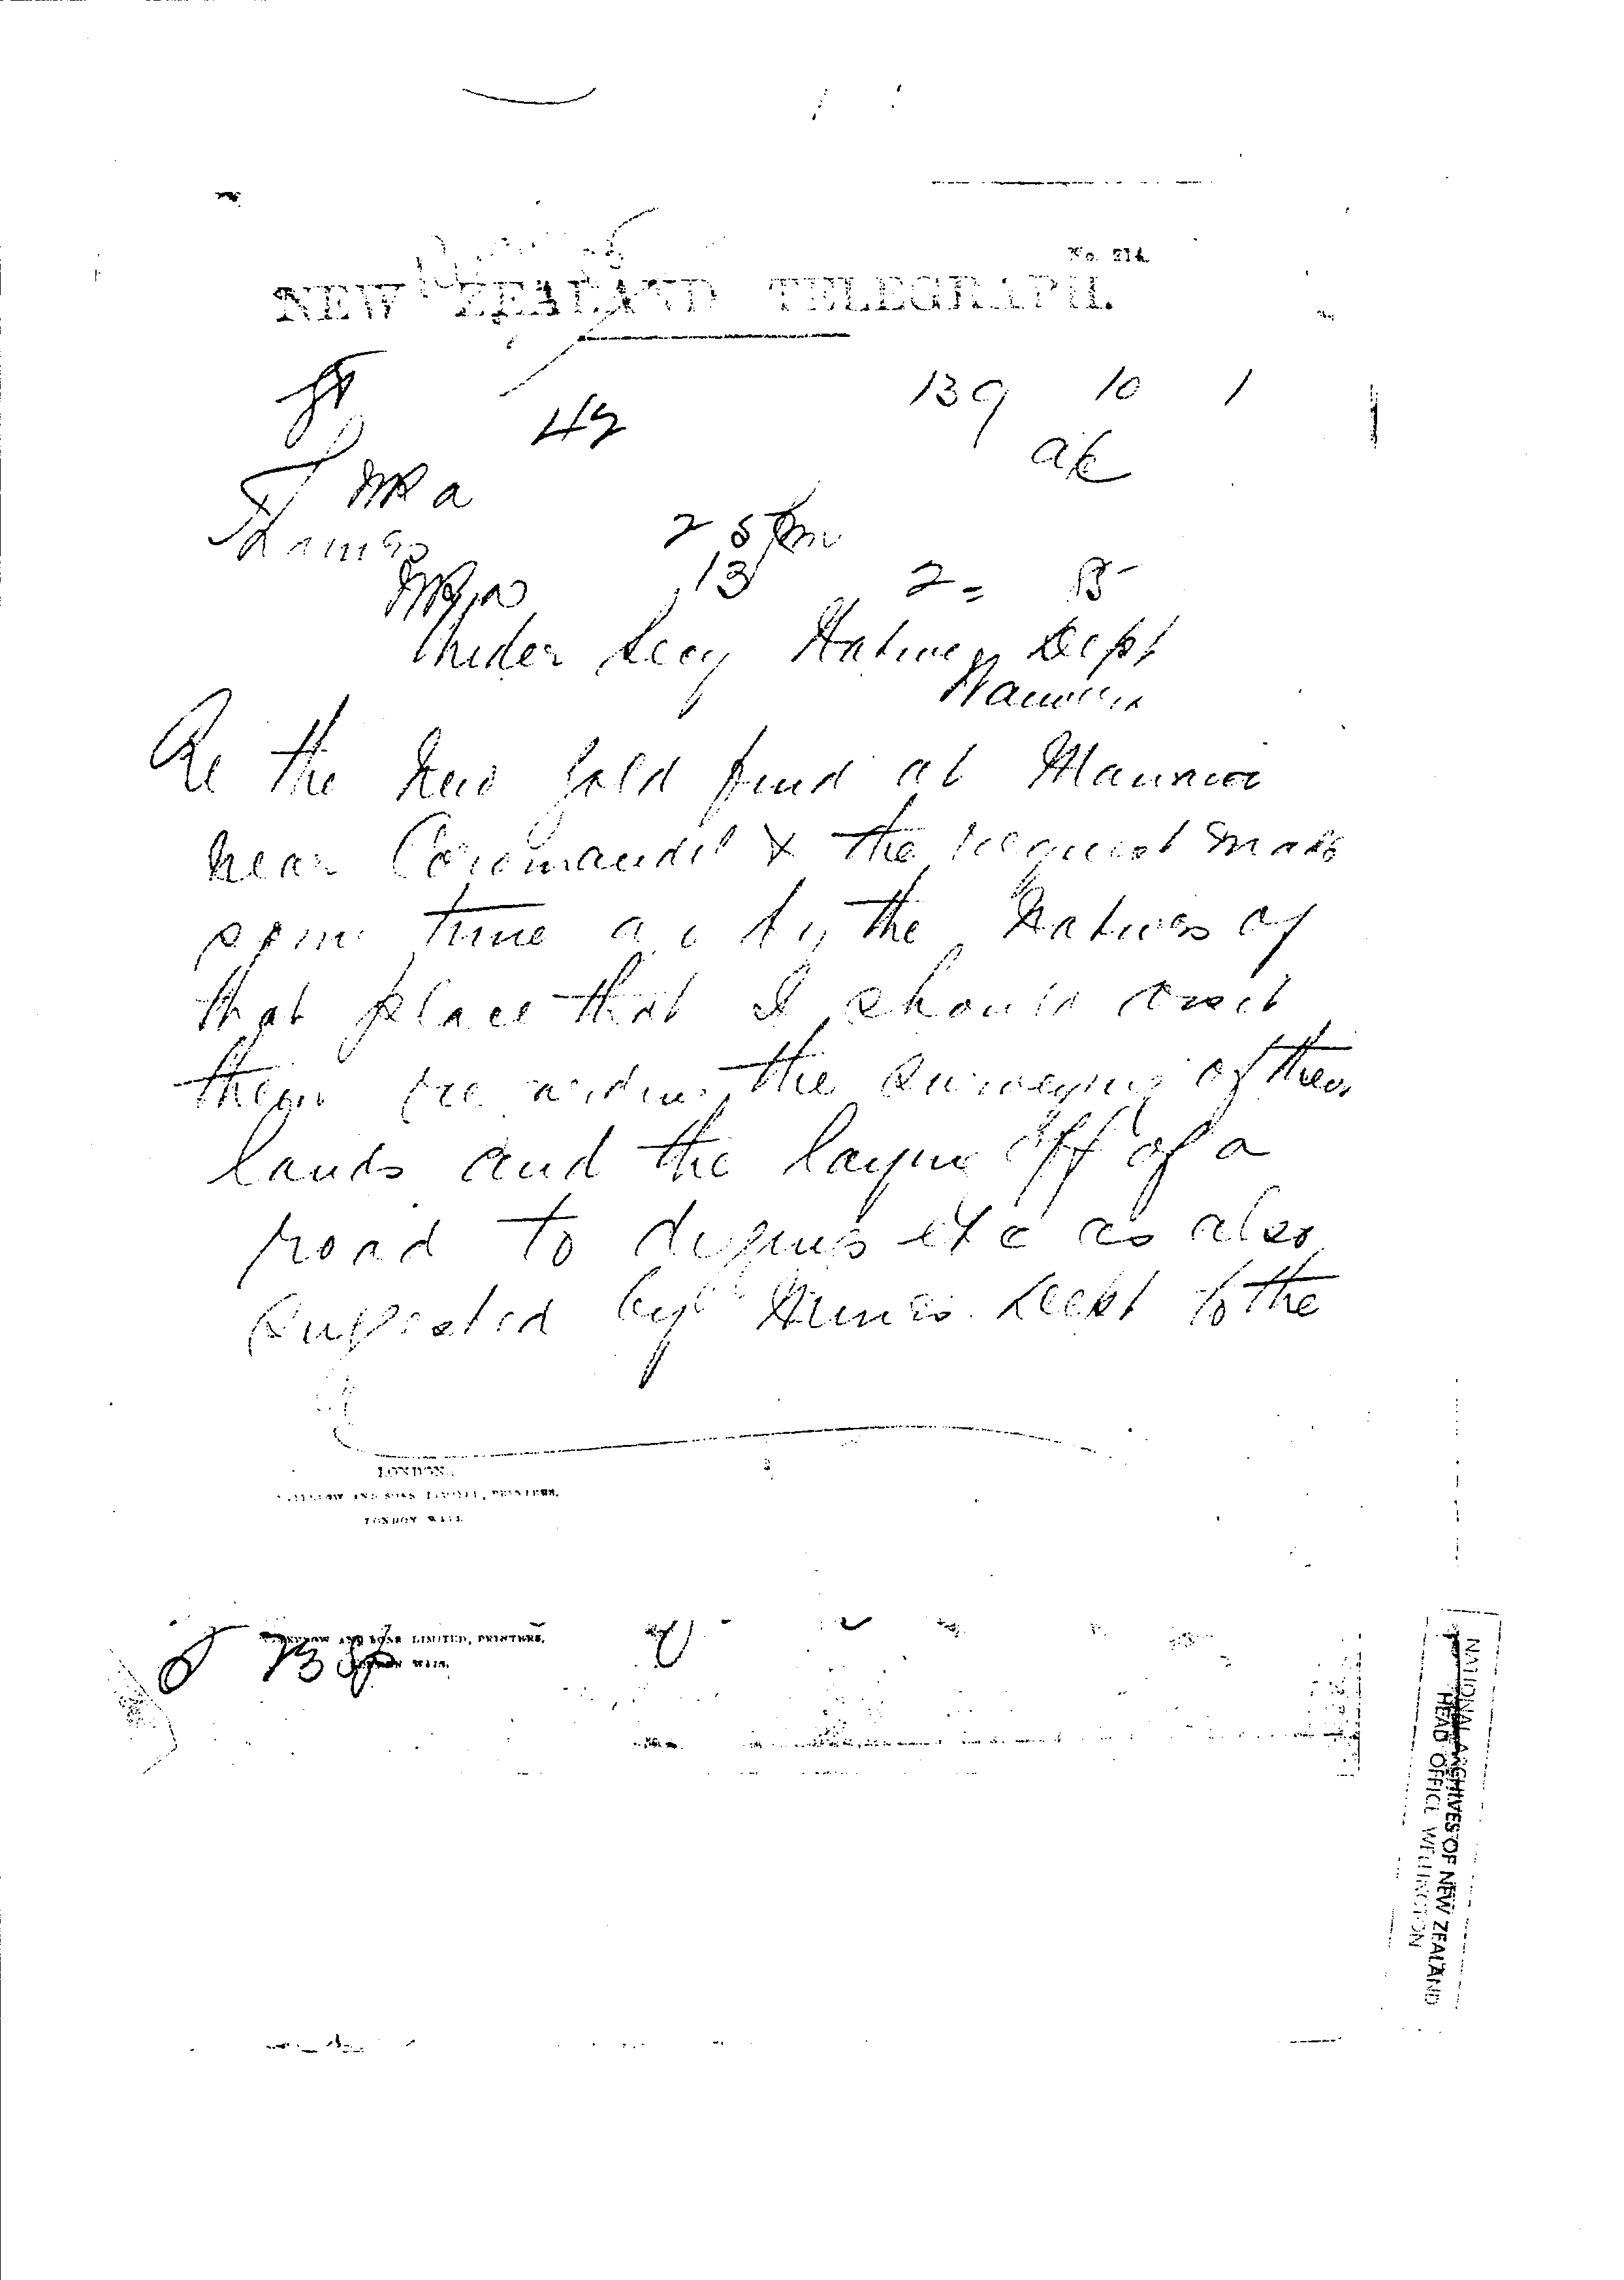 No. 214.
NEW ZEALAND TELEGRAPH.
139 10 1
42
ak
Thames
2 5 pm
13 2 =
Under Secy Native Dept
Re the New Gold find at Manaia
near Coromandel & the request made
some time ago by the Natives of
that place that I should visit
them regarding the surveying of their
lands and the laying off of a
road to digings etc as also
suggested by Mines Dept to the
LONDON:
AND SONS LIMITED, PRINTERS,
LONDON WALL
AND SONS LIMITED, PRINTERS,
WALL.
NATIONAL ARCHIVES OF NEW ZEALAND
HEAD OFFICE WELLINGTON